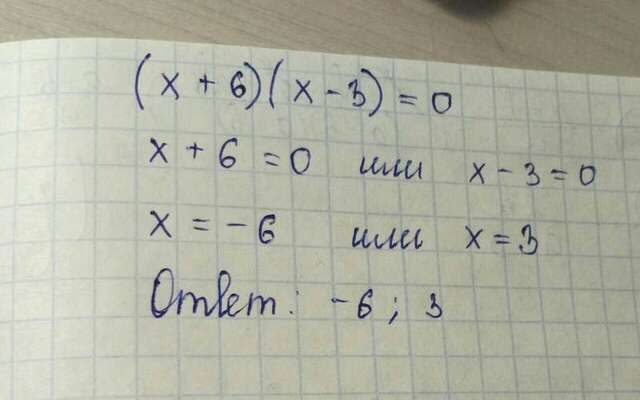 (x + 6)(x - 3) = 0
x + 6 = 0 или x - 3 = 0
x = -6 или x = 3
Ответ: -6; 3